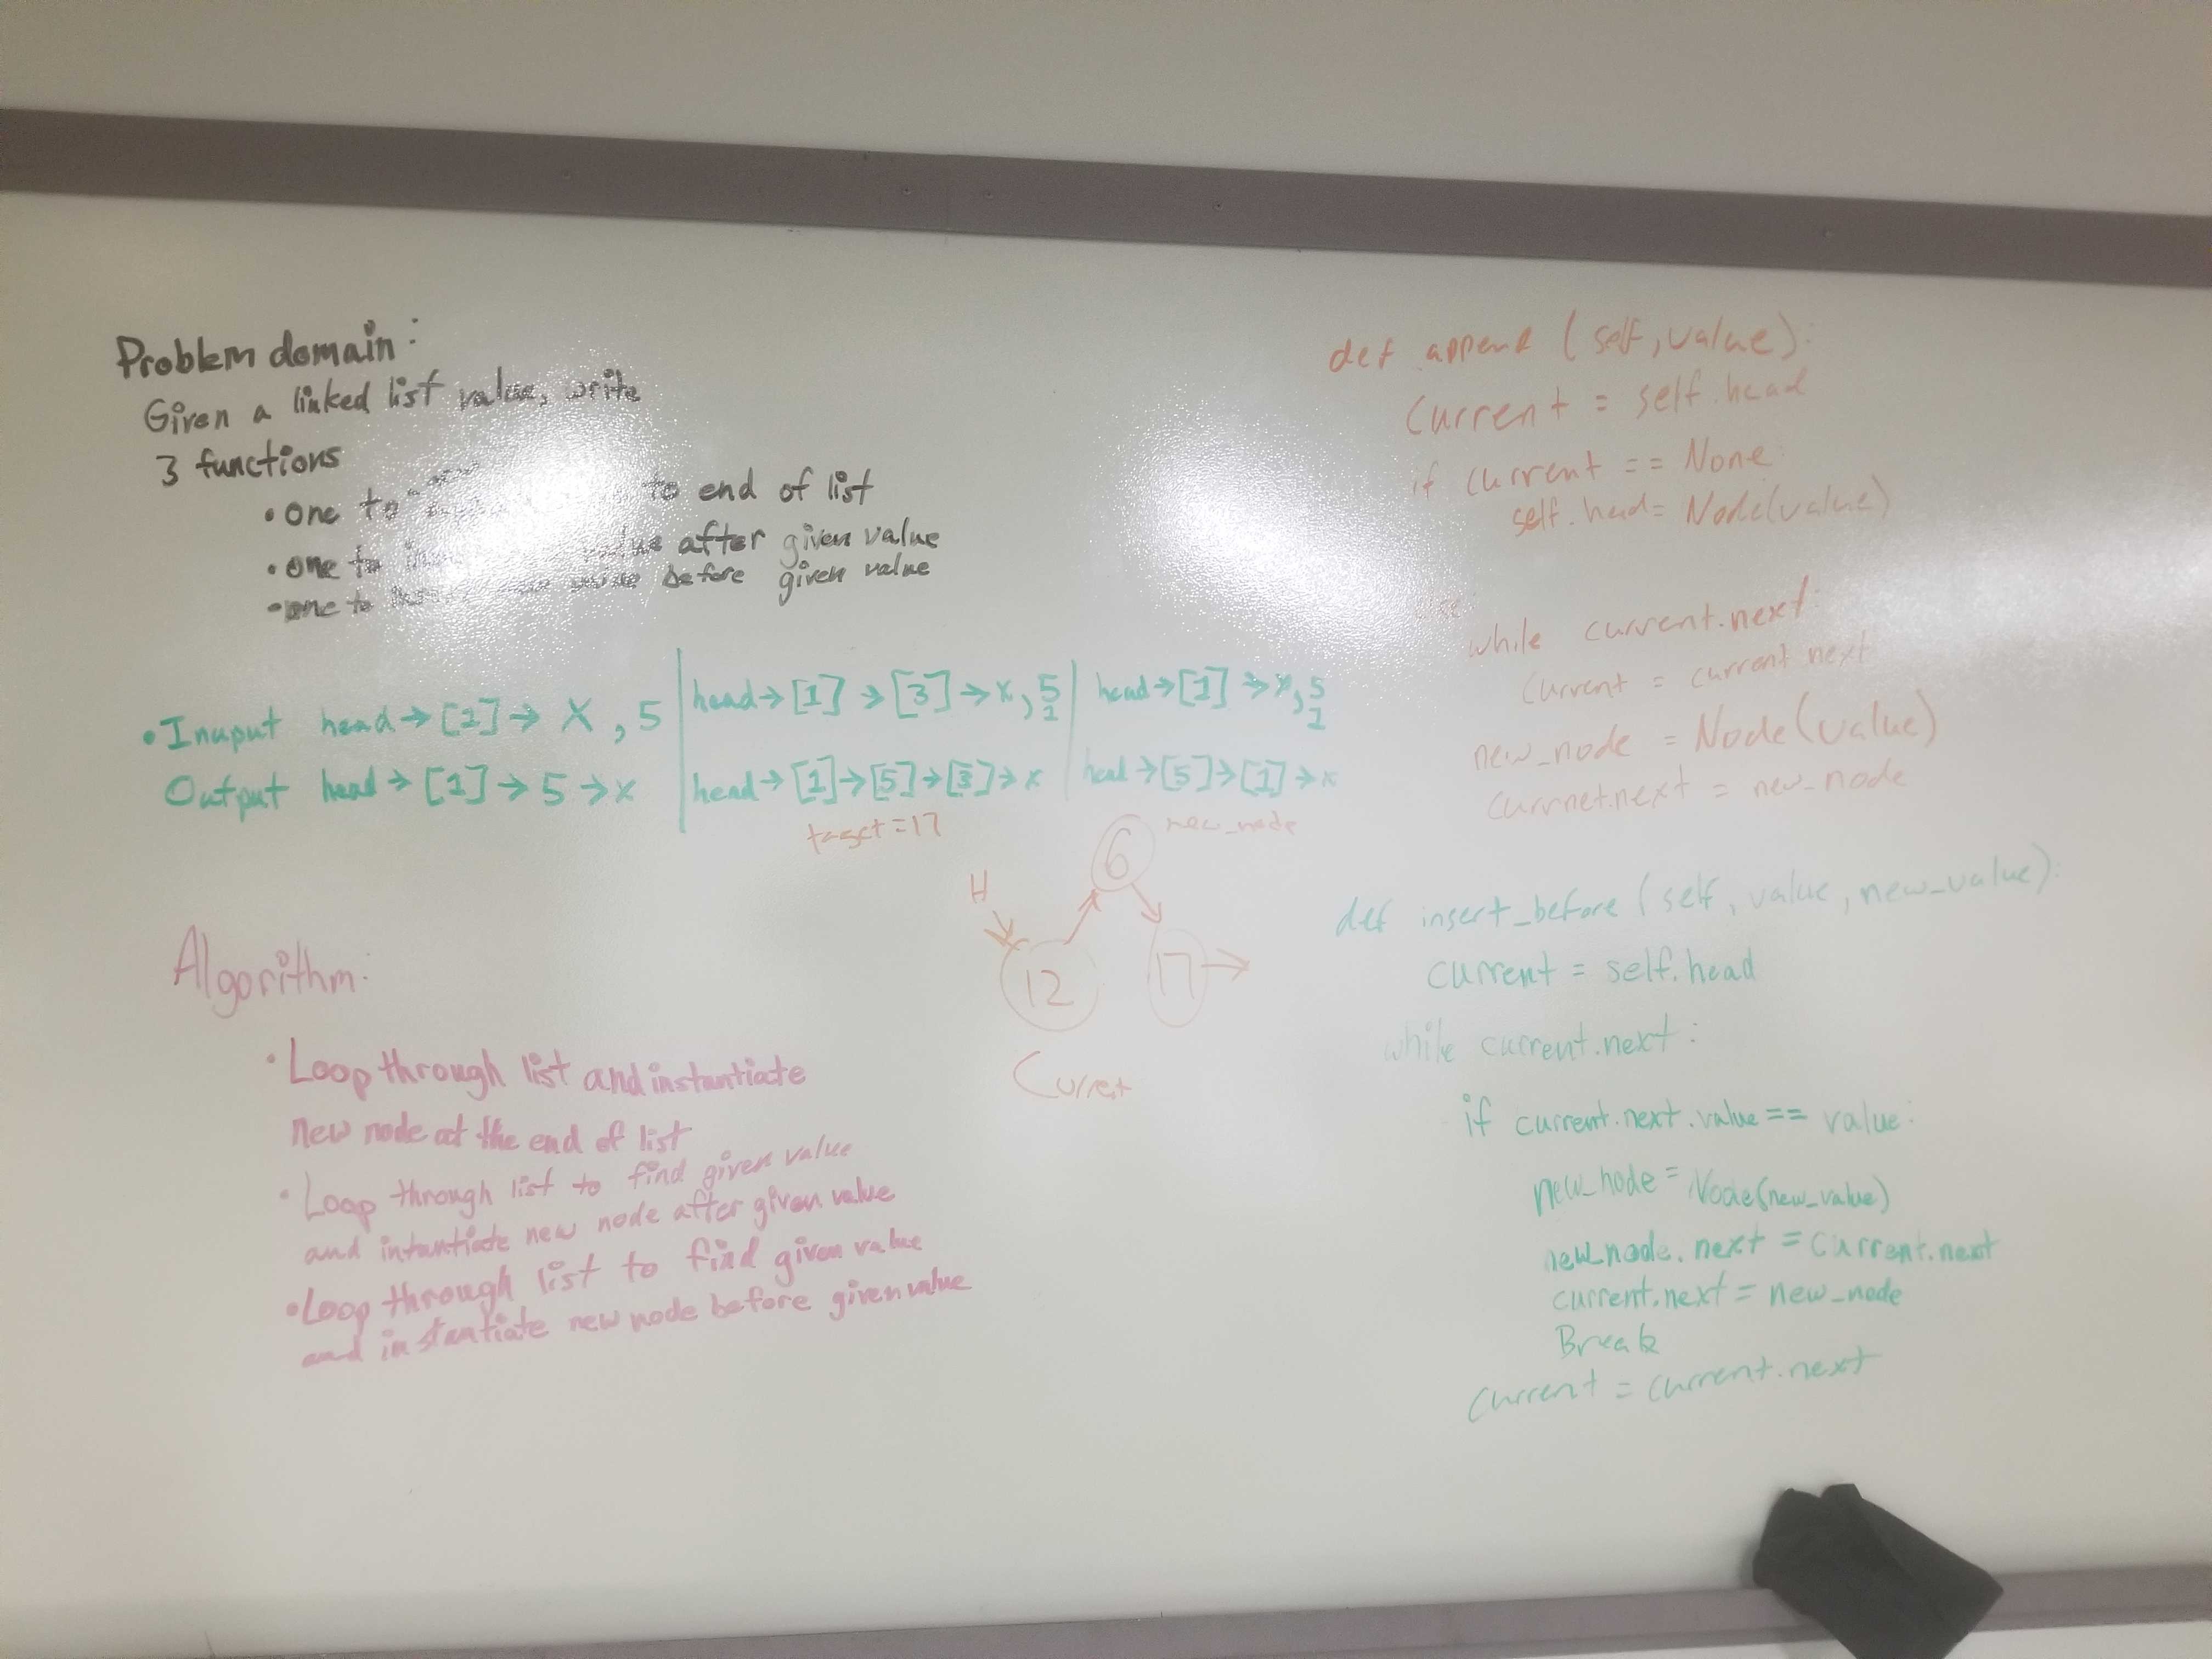 Problem domain:
Given a linked list value, write
3 functions
• one to to end of list
• one to value after given value
• one to before given value
• Inuput head→[1]→ X , 5 | head→[1]→[3]→x, 5 | head→[1]→x, 5
1 1
Output head→[1]→5→x | head→[1]→[5]→[3]→x | head→[5]→[1]→x
target=17
new_node
6
H
12
17
Curret
Algorithm:
• Loop through list and instantiate
new node at the end of list
• Loop through list to find given value
and intantiate new node after given value
• Loop through list to find given value
and instantiate new node before given value
def append (self, value):
Current = self.head
if current == None:
self.head= Node(value)
while current.next:
Current = current next
new_node = Node(value)
currnet.next = new_node
def insert_before (self, value, new_value):
current = self.head
while current.next:
if current.next.value == value:
new_node = Node(new_value)
new_node.next = current.next
current.next = new_node
Break
Current = current.next